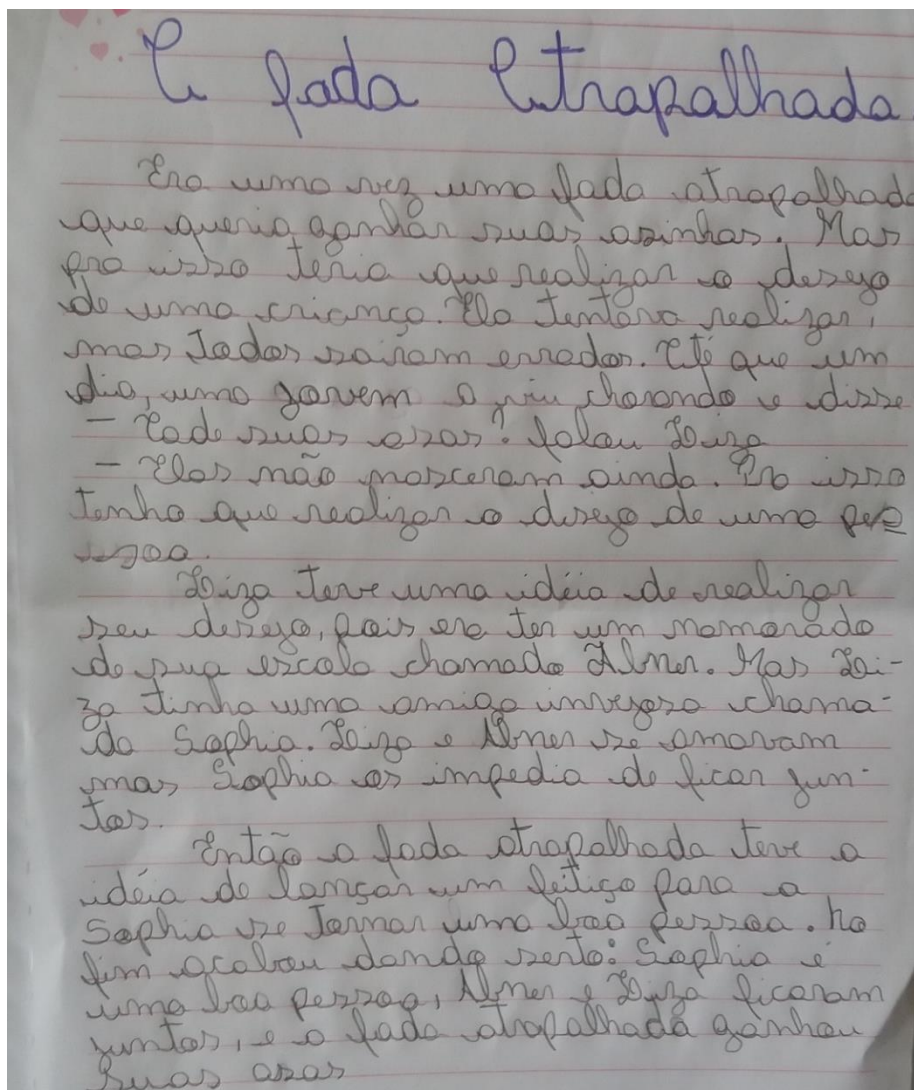 A fada Atrapalhada
Era uma vez uma fada atrapalhada
que queria ganhar suas asinhas. Mas
pra isso teria que realizar o desejo
de uma criança. Ela tentava realizar,
mas todos saíram errados. Até que um
dia, uma jovem a viu chorando e disse
- Cade suas asas? falou Luiza
- Elas não nasceram ainda. Pra isso
tenho que realizar o desejo de uma pe
ssoa.
Luiza teve uma idéia de realizar
seu desejo, pois era ter um namorado
da sua escola chamado Abner. Mas Lui-
za tinha uma amiga invejosa chama-
da Sophia. Luiza e Abner se amavam
mas Sophia os impedia de ficar jun-
tos.
Então a fada atrapalhada teve a
idéia de lançar um feitiço para a
Sophia se tornar uma boa pessoa. No
fim acabou dando serto: Sophia é
uma boa pessoa, Abner e Luiza ficaram
juntos, e a fada atrapalhada ganhou
suas asas